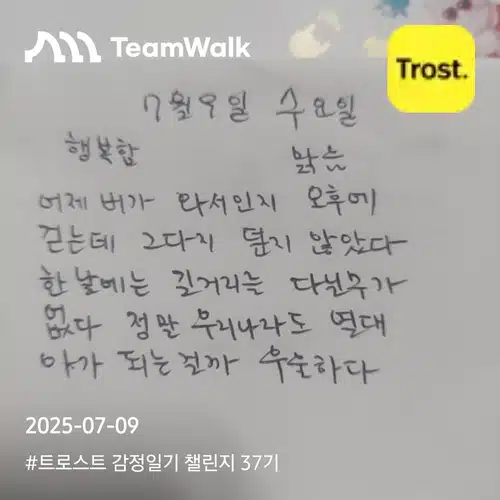 TeamWalk
Trost.
7월 9일 수요일
행복함 맑음
어제 비가 와서인지 오후에
걷는데 그다지 덥지 않았다
한낮에는 길거리를 다닐수가
없다 정말 우리나라도 열대
야가 되는걸까 우울하다
2025-07-09
#트로스트 감정일기 챌린지 37기